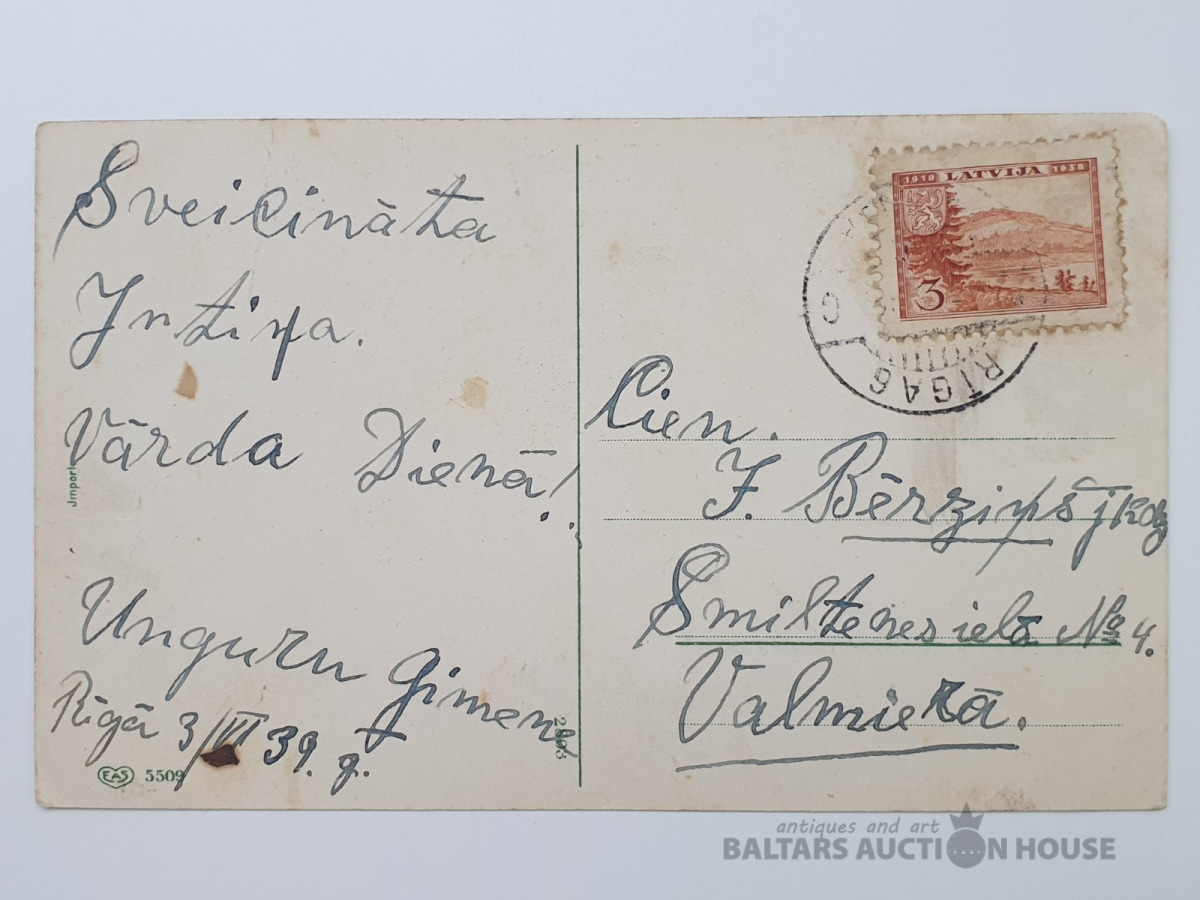 Sveicināta
Intiņa.
Vārda Dienā!
Unguru ģimene
Rīgā 3/VI 39. g.
Jmport
EAS 5509
2806
1918 LATVIJA 1938
3
RIGA 6
Cien.
J. Bērziņš j kdz
Smiltenes ielā № 4.
Valmierā.
antiques and art
BALTARS AUCTION HOUSE